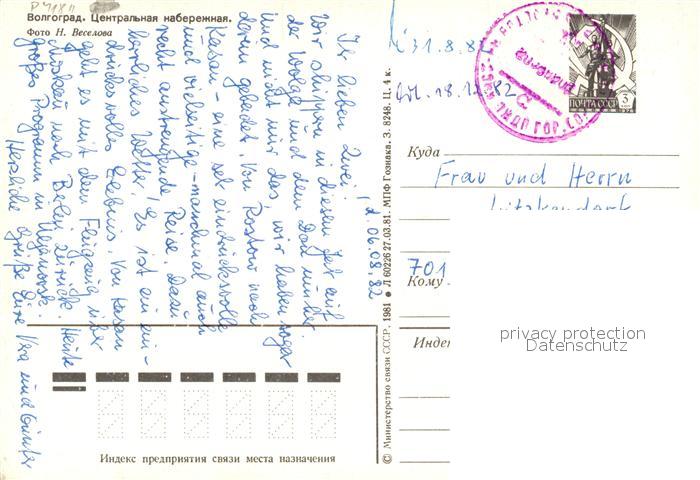 Волгоград. Центральная набережная.
Фото Н. Веселова
Ihr lieben Zwei! d. 06.08.82
Wir shippern in diesem Jahr auf
der Wolga und dem Don runter
und nicht nur das, wir haben sogar
darin gebadet. Von Rostow nach
Kasan - eine sehr eindrucksvolle
und vielseitige - manchmal auch
recht anstrengende Reise. Dazu
herrliches Wetter! Es ist ein ein-
drucksvolles Erlebnis. Von Kasan
geht es mit dem Flugzeug über
Moskau nach Berlin zurück. Heute
großes Programm in Uljanowsk.
Herzliche Grüße Eure Vera und Günter
31.8.82
18.12.82
ПОЧТА СССР 3
Куда
Frau und Herrn
701
Кому
Индек
privacy protection
Datenschutz
© Министерство связи СССР, 1981 ● Л 60226 27.03.81. МПФ Гознака. З. 8248. Ц. 4 к.
Индекс предприятия связи места назначения